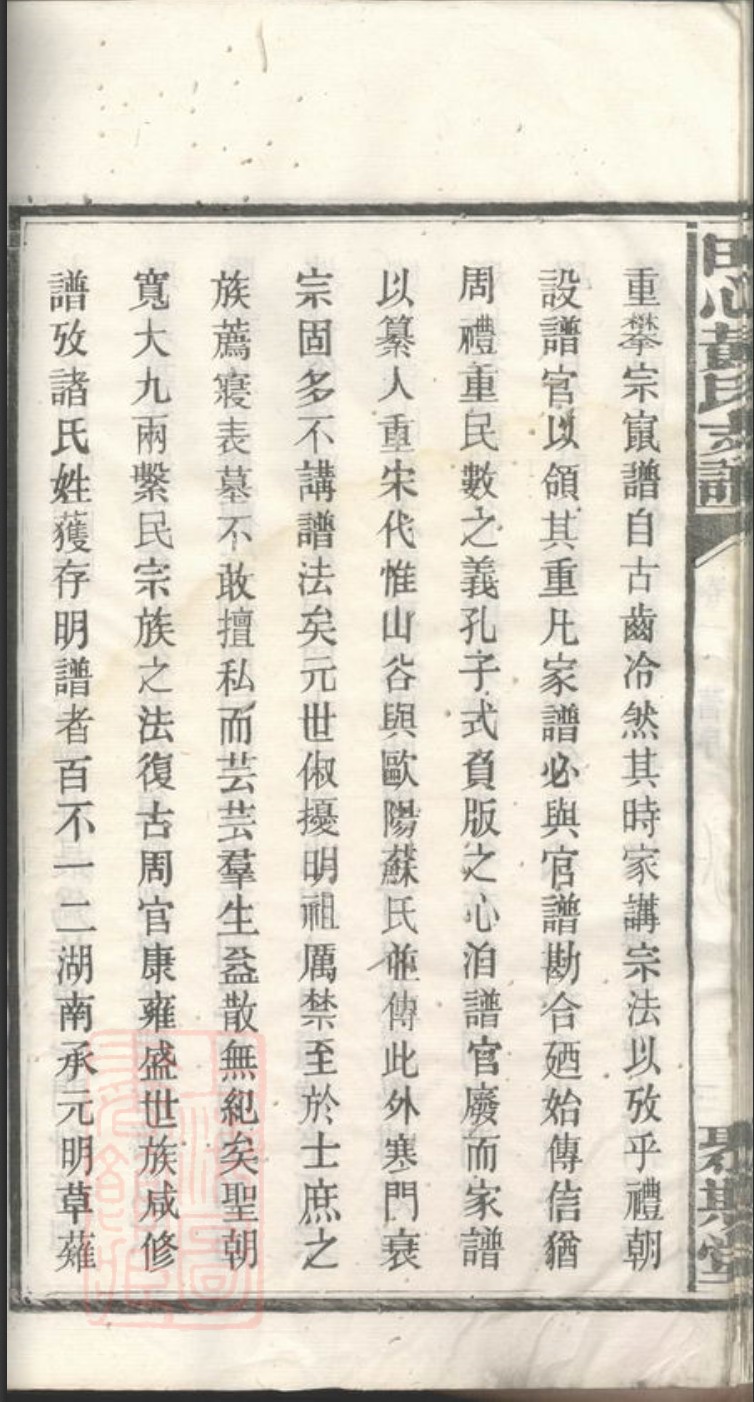 重攀宗竄譜自古齒冷然其時家講宗法以攷乎禮朝
設譜官以領其重凡家譜必與官譜勘合廼始傳信猶
周禮重民數之義孔子式負版之心洎譜官廢而家譜
以纂人重宋代惟山谷與歐陽蘇氏並傳此外寒門衰
宗固多不講譜法矣元世俶擾明祖厲禁至於士庶之
族薦寢表墓不敢擅私而芸芸羣生益散無紀矣聖朝
寬大九兩繫民宗族之法復古周官康雍盛世族咸修
譜攷諸氏姓獲存明譜者百不一二湖南承元明草薙
黃氏支譜